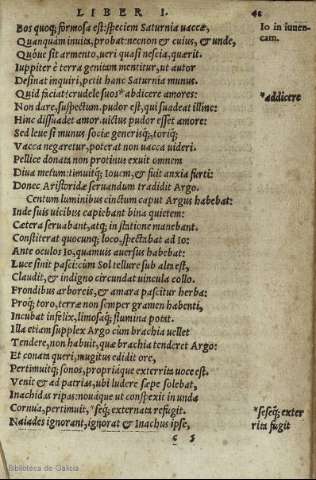 LIBER I.
41
Bos quoq; formosa est: speciem Saturnia uaccæ,
Io in iuuen-
cam.
Quanquam inuita, probat: necnon & cuius, & unde,
Quóue sit armento, ueri quasi nescia, quærit.
Iuppiter è terra genitam mentitur, ut autor
Desinat inquiri. petit hanc Saturnia munus.
Quid faciat? crudele suos* abdicere amores:
*addicere
Non dare, suspectum. pudor est, qui suadeat illinc:
Hinc dissuadet amor. uictus pudor esset amore:
Sed leue si munus sociæ generisq;, toriq;
Vacca negaretur, poterat non uacca uideri.
Pellice donata non protinus exuit omnem
Diua metum: timuitq; Iouem, & fuit anxia furti:
Donec Aristoridæ seruandum tradidit Argo.
Centum luminibus cinctum caput Argus habebat:
Inde suis uicibus capiebant bina quietem:
Cætera seruabant, atq; in statione manebant.
Constiterat quocunq; loco, spectabat ad Io:
Ante oculos Io, quamuis auersus habebat:
Luce sinit pasci: cùm Sol tellure sub alta est,
Claudit, & indigno circundat uincula collo.
Frondibus arboreis, & amara pascitur herba:
Proq; toro, terræ non semper gramen habenti,
Incubat infelix, limosaq; flumina potat.
Illa etiam supplex Argo cùm brachia uellet
Tendere, non habuit, quæ brachia tenderet Argo:
Et conata queri, mugitus edidit ore,
Pertimuitq; sonos, propriaque exterrita uoce est.
Venit & ad patrias, ubi ludere sæpe solebat,
Inachidas ripas: nouáque ut conspexit in unda
Cornua, pertimuit, *seq; externata refugit.
*seseq; exter
rita fugit
Naiades ignorant, ignorat & Inachus ipse,
c 5
Biblioteca de Galicia